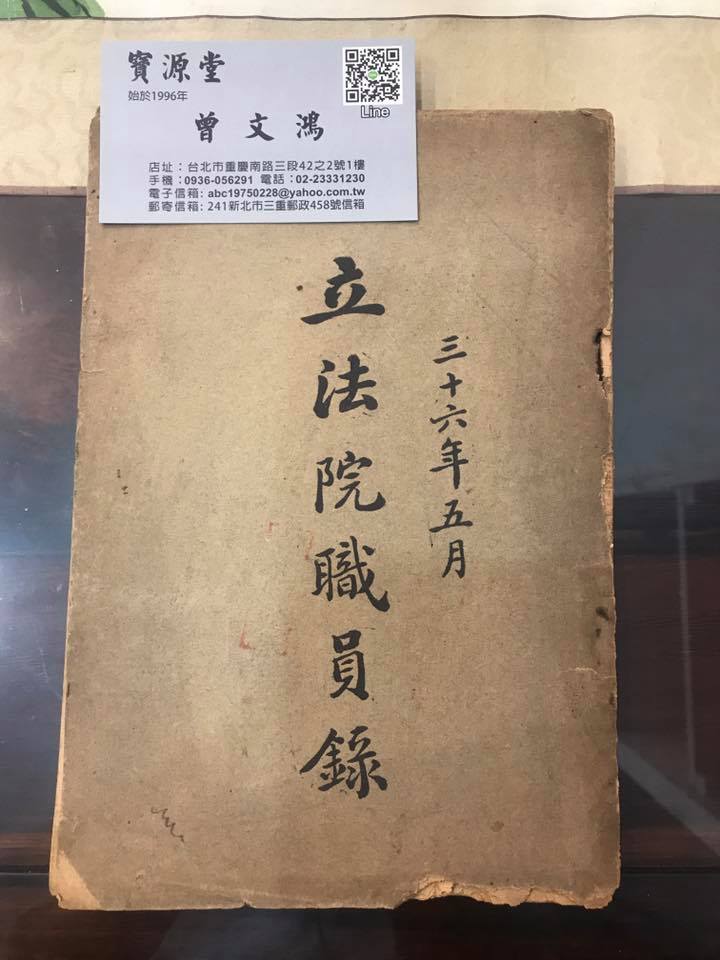 寶源堂
始於1996年
曾文鴻
Line
店址：台北市重慶南路三段42之2號1樓
手機：0936-056291 電話：02-23331230
電子信箱：abc19750228@yahoo.com.tw
郵寄信箱：241新北市三重郵政458號信箱
三十六年五月
立法院職員錄